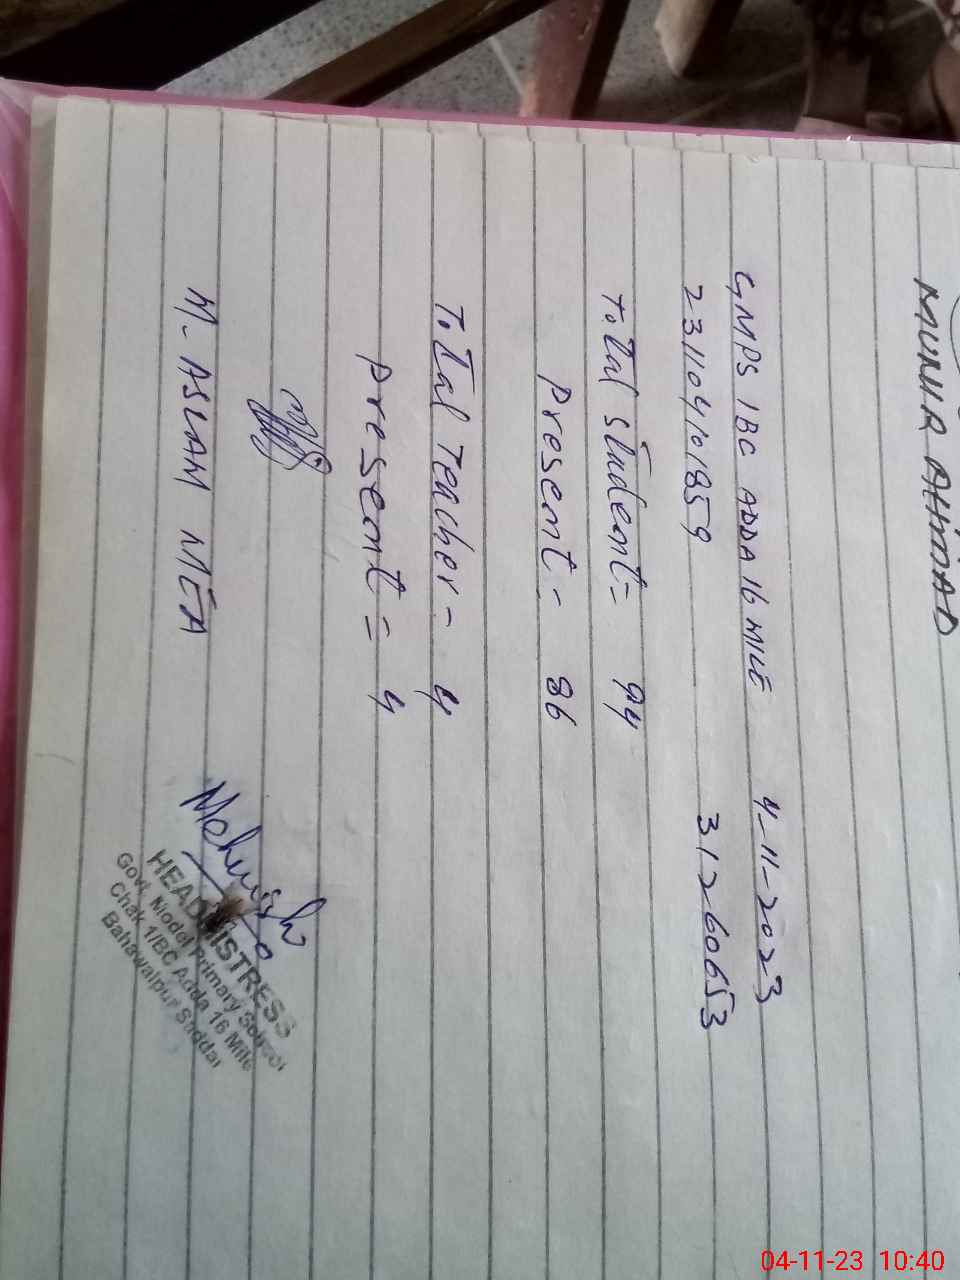 MUNIR AHMAD
GMPS 1BC ADDA 16 MILE 4-11-2023
231104101859 31260653
Total Student = 94
Present - 86
Total Teacher - 4
Present = 4
M. ASLAM MEA
HEADMISTRESS
Govt. Model Primary School
Chak 1/BC Adda 16 Mile
Bahawalpur Saddar
04-11-23 10:40